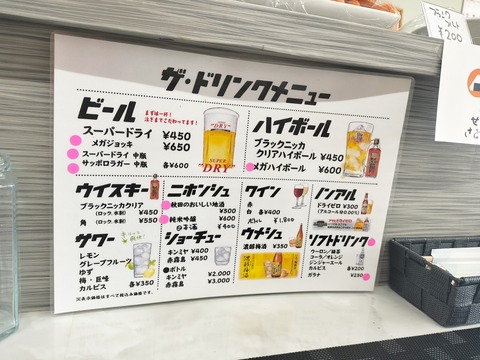 ブラック
ニッカ
¥200
ザ・ドリンクメニュー
ビール
まずは一杯!
注ぎまでこだわってます!
スーパードライ ¥450
メガジョッキ ¥650
スーパードライ 中瓶
サッポロラガー 中瓶 各¥600
"DRY"
SUPER
"DRY"
ハイボール
ブラックニッカ
クリアハイボール ¥450
メガハイボール ¥600
ウイスキー
ブラックニッカクリア
(ロック、水割) ¥450
角 (ロック、水割) ¥550
ニホンシュ
秋田のおいしい地酒
¥500
¥600
純米吟醸
¥900
ワイン
赤
白 各¥400
¥1,800
ノンアル
ドライゼロ ¥300
(アルコール分0.00%)
サワー
レモン
グレープフルーツ
ゆず
梅・巨峰
カルピス 各¥350
ショーチュー
キンミヤ ¥400
赤霧島 ¥450
●ボトル
キンミヤ ¥2,000
赤霧島 ¥3,000
ウメシュ
濃醇梅酒 ¥350
ソフトドリンク
ウーロン/緑茶
コーラ/オレンジ
ジンジャーエール
カルピス 各¥200
ガラナ ¥250
※表示価格はすべて税込み価格です。